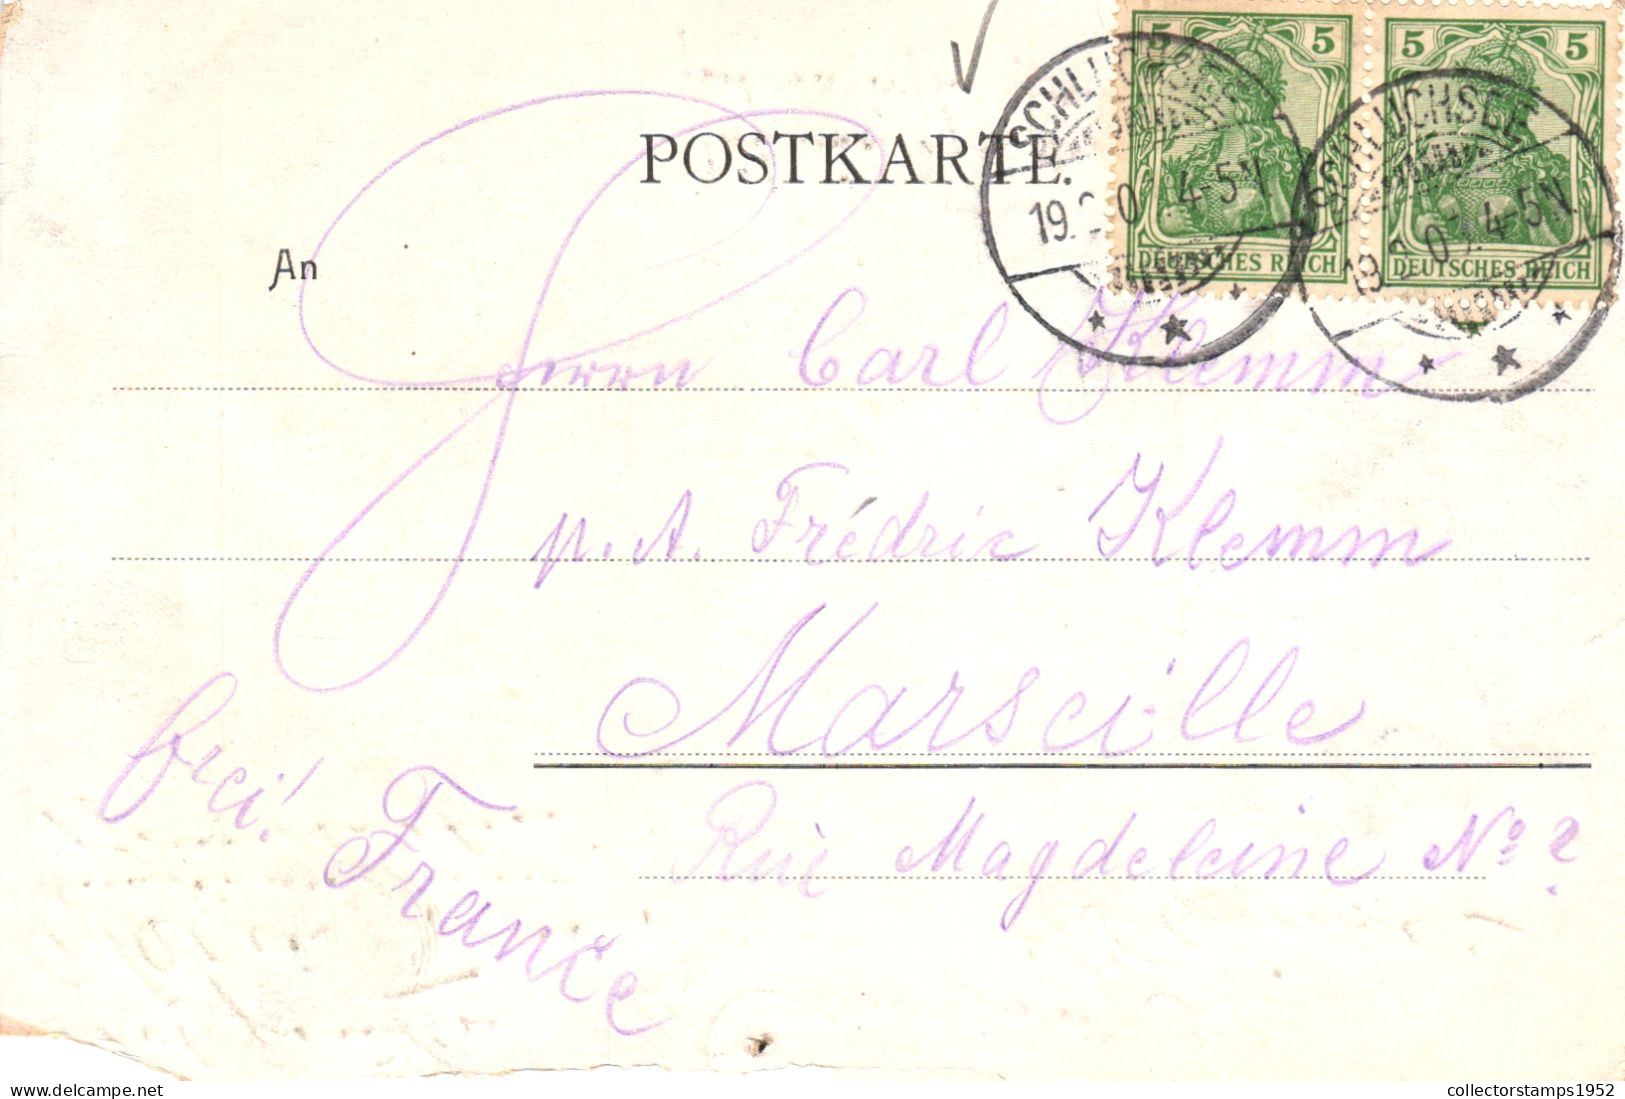 POSTKARTE.
5 5
5 5
DEUTSCHES REICH
DEUTSCHES REICH
SCHLUCHSEE
19. 4-5N
SCHLUCHSEE
19. 4-5N
An
Herrn Carl Klemm
p. A. Frédric Klemm
Marseille
Rue Magdeleine No 2
frei!
France
delcampe.net
collectorstamps1952